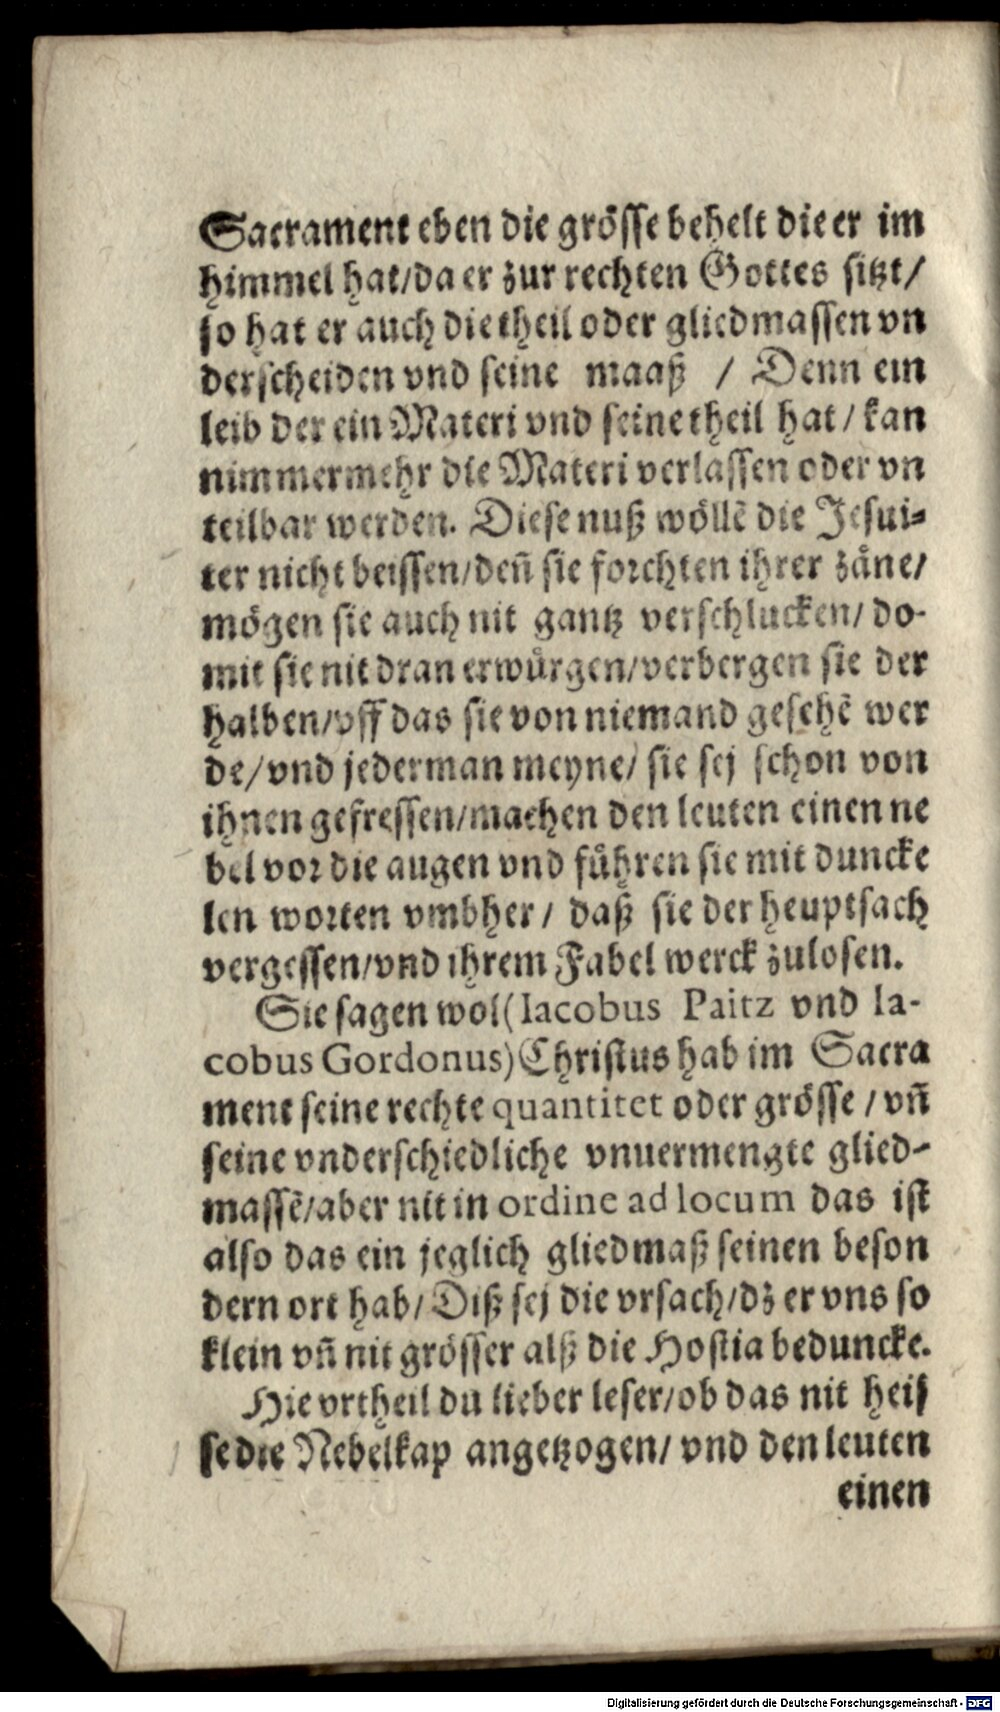 Sacrament eben die grösse behelt die er im
himmel hat/da er zur rechten Gottes sitzt/
so hat er auch die theil oder gliedmassen vn
derscheiden vnd seine maaß / Denn ein
leib der ein Materi vnd seine theil hat / kan
nimmermehr die Materi verlassen oder vn
teilbar werden. Diese nuß wöllẽ die Jesui=
ter nicht beissen/deñ sie forchten ihrer zäne/
mögen sie auch nit gantz verschlucken/ do-
mit sie nit dran erwürgen/verbergen sie der
halben/vff das sie von niemand gesehẽ wer
de/vnd jederman meyne/ sie sej schon von
ihnen gefressen/machen den leuten einen ne
bel vor die augen vnd führen sie mit duncke
len worten vmbher/ daß sie der heuptsach
vergessen/vnd ihrem Fabel werck zulosen.
Sie sagen wol(Iacobus Paitz vnd Ia-
cobus Gordonus)Christus hab im Sacra
ment seine rechte quantitet oder grösse / vñ
seine vnderschiedliche vnuermengte glied-
massẽ/aber nit in ordine ad locum das ist
also das ein jeglich gliedmaß seinen beson
dern ort hab/ Diß sej die vrsach/dz er vns so
klein vñ nit grösser alß die Hostia beduncke.
Hie vrtheil du lieber leser/ob das nit heis
se die Nebelkap angetzogen/ vnd den leuten
einen
Digitalisierung gefördert durch die Deutsche Forschungsgemeinschaft - DFG